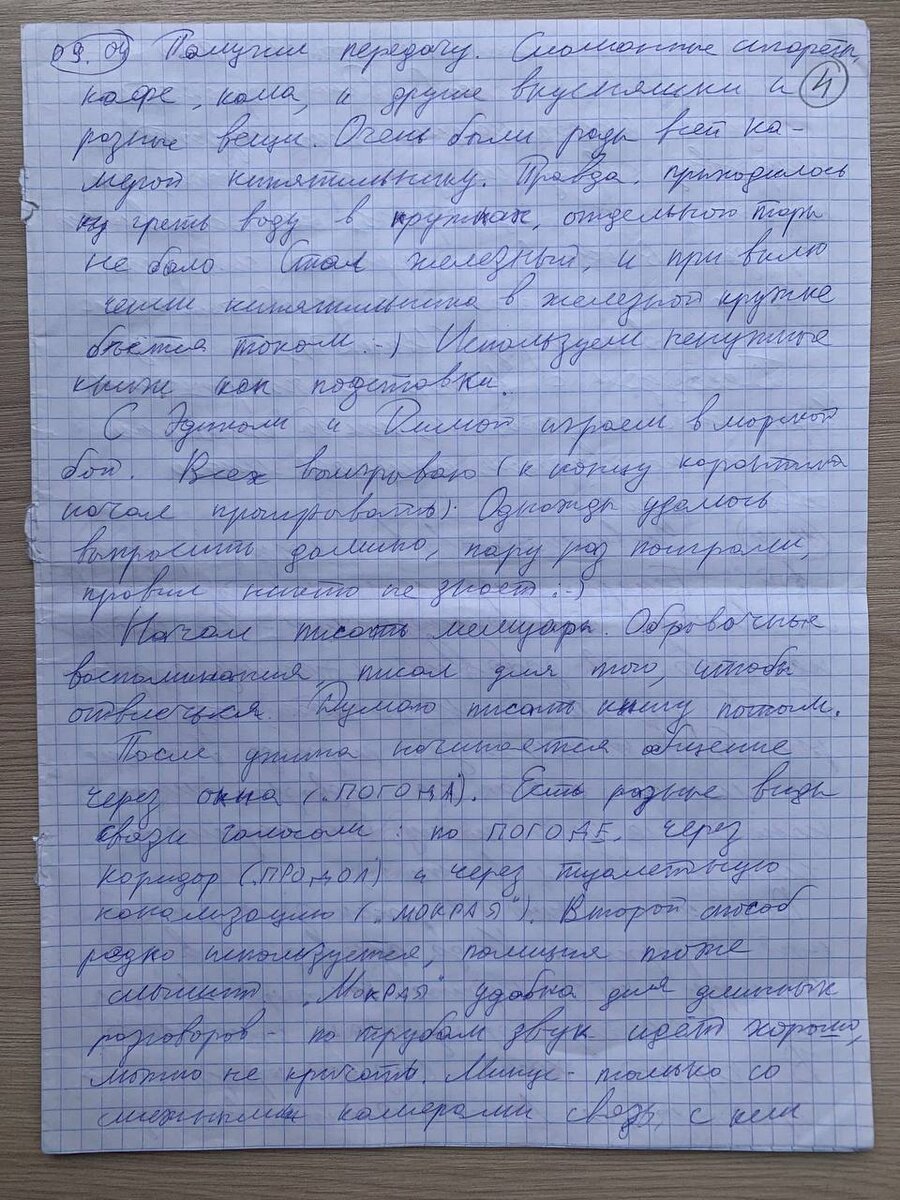 09.04 Получил передачу. Сломанные сигареты,
кофе, кола, и другие вкусняшки и 4
разные вещи. Очень были рады всей ка-
мерой кипятильнику. Правда, приходилось
греть воду в кружках, отдельной тары
не было. Стол железный, и при вклю
чении кипятильника в железной кружке
бьётся током :-) Используем ненужные
книж как подставки.
С Эдиком и Димой играем в морской
бой. Всех выигрываю (к концу карантина
начал проигрывать). Однажды удалось
выпросить домино, пару раз поиграли,
правил никто не знает :-)
Начал писать мемуары. Обрывочные
воспоминания, писал для того, чтобы
отвлечься. Думаю писать книгу потом.
После ужина начинается общение
через окна („ПОГОДА"). Есть разные виды
связи голосом: по ПОГОДЕ, через
коридор („ПРОДОЛ") и через туалетную
канализацию („МОКРАЯ"). Второй способ
редко используется, полиция тоже
слышит. „МОКРАЯ" удобна для длинных
разговоров - по трубам звук идёт хорошо,
можно не кричать. Минус - только со
смежными камерами связь, с кем